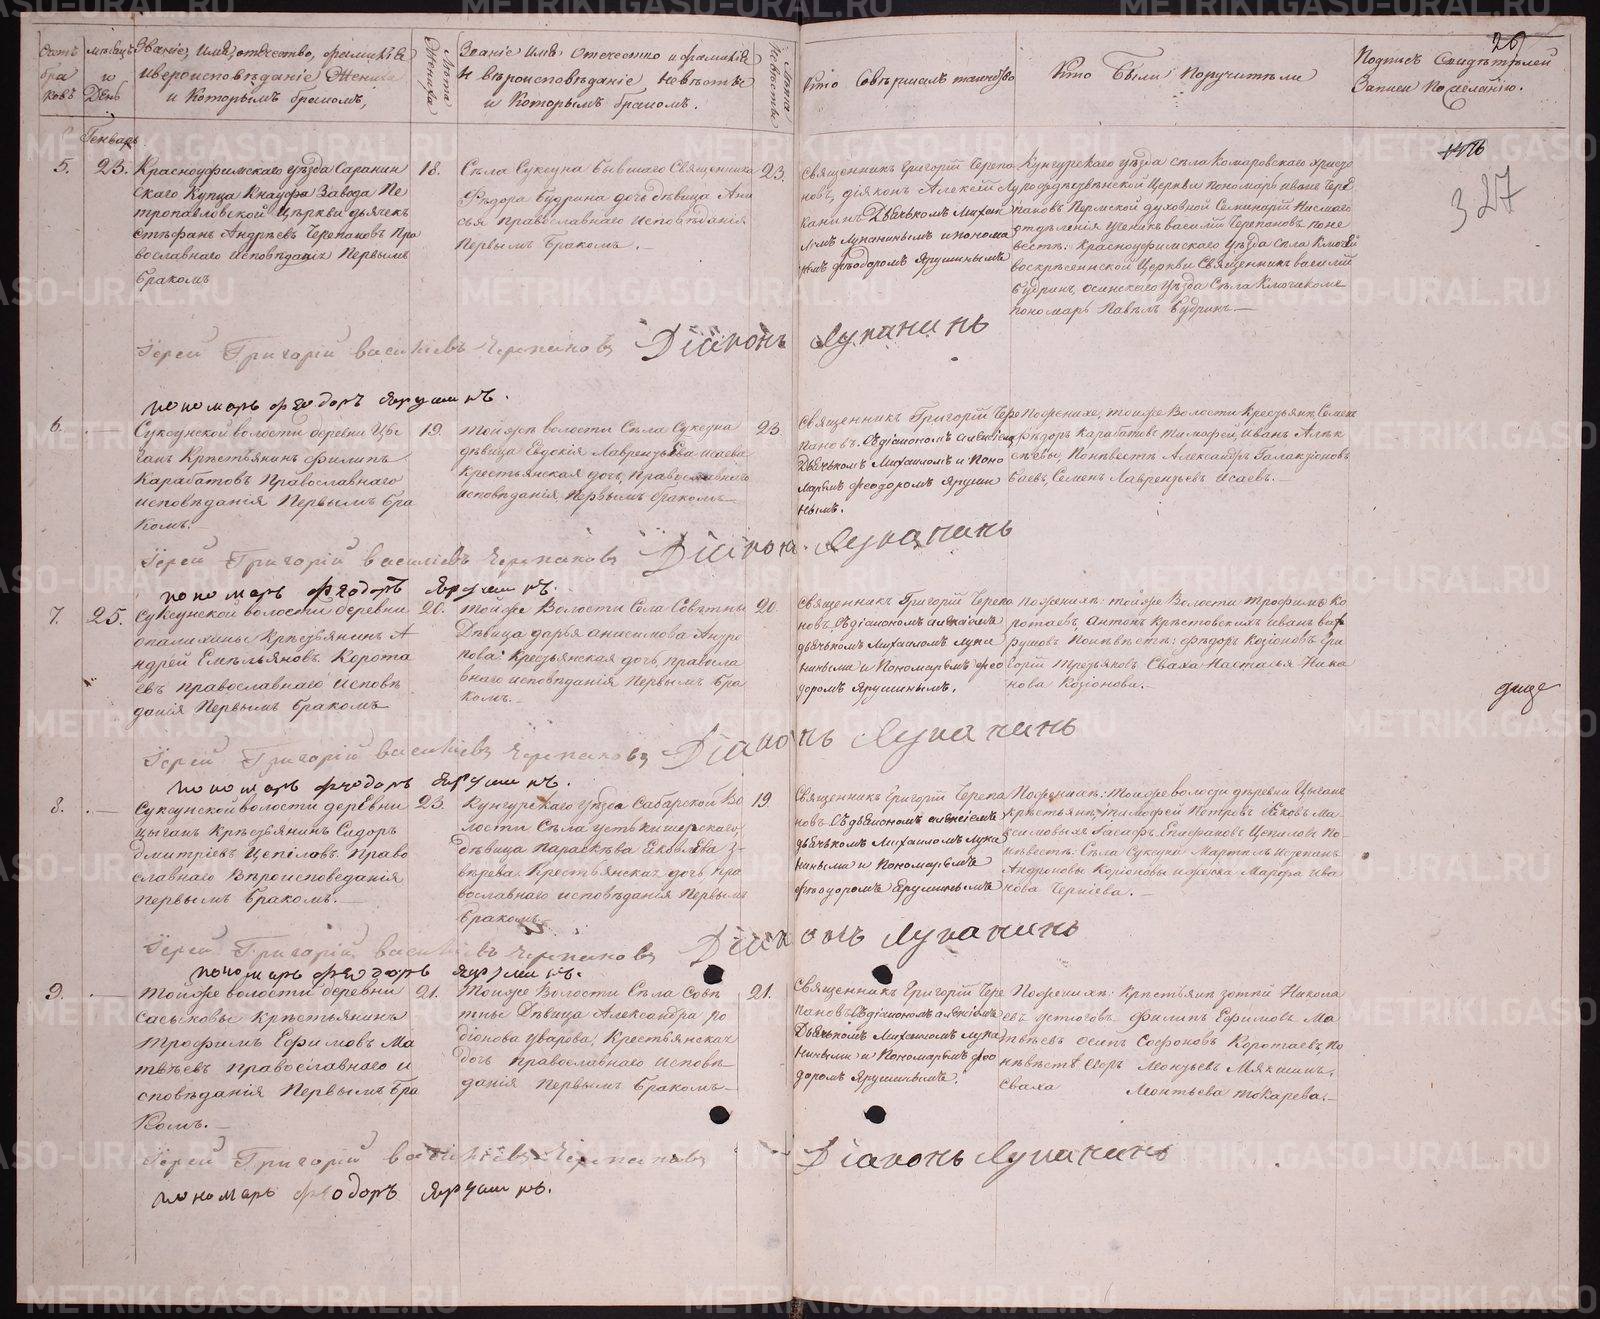 Счетъ браковъ
Мѣсяцъ и День
Званіе, Имя, отечество, фамилія
и вероисповѣданіе Жениха
и Которымъ бракомъ,
Лѣта Жениха
Званіе Имя Отечество и фамилія
и вѣроисповѣданіе невѣсты
и Которымъ бракомъ.
Лѣта Невѣсты
Кто Совѣршалъ таинство
Кто Были Поручители
Подпись Свидѣтѣлей
Записи По желанію.
29
327
Генварь
5.
23.
Красноуфимскаго уѣзда Саранин
скаго Купца Кнауфа Завода Пе
тропавловской Цѣркви дьячекъ
стѣфанъ Андрѣевъ Черепановъ Пра
вославнаго исповѣданія Первымъ
бракомъ
18.
Села Суксуна бывшаго Священника
Фѣдора Будрина дочь дѣвица Ана
сья православнаго исповѣданія
Первымъ бракомъ. —
23.
Священникъ Григорій Черепа
новъ, діяконъ Алексѣй Лу
канинъ Дьячькомъ Михаи
ломъ Луканинымъ и понома
рѣмъ фѣодоромъ Ярушинымъ
Кунгурскаго уѣзда села Комаровскаго христо
рождѣствѣнской Церкви пономарь иванъ Чере
пановъ Пермской духовной Семинаріи Нисшаго
отдѣленія ученикъ василій Черепановъ поне
вестѣ: Красноуфимскаго уѣзда села Ключей
воскрѣсеннской Церкви Священникъ василій
Будринъ, осинскаго уѣзда Села Ключиковъ
пономарь Павѣлъ Будринъ —
Іерей Григорій василіевъ Черепановъ Діаконъ Луканинъ
пономарь феодоръ Ярушинъ.
6.
—
Суксунской волости деревни Цы
ганъ Крѣстьянинъ филипъ
Карабатовъ Православнаго
исповѣданія Первымъ бра
комъ. —
19.
тойже волости Села Суксуна
дѣвица Евдокія Лаврентьева исаева
Крестьянская дочь, Православнаго
исповѣданія, Первымъ бракомъ —
23
священникъ Григорій Чере
пановъ. Съ діакономъ алексіемъ
Дьячькомъ Михаиломъ и Поно
марьмъ феодоромъ Ярушин
нымъ.
Поженихе, тойже Волости Крестьянѣ, Семенъ
фѣдоръ Карабатовъ тимофей, иванъ Алек
сѣевы, Понѣвестѣ Александръ Галакціоновъ
баевъ, Семенъ Лаврентьевъ исаевъ. —
Іерей Григорій василіевъ Черепановъ Діаконъ. Луканинъ
пономарь феодоръ Ярушинъ.
7.
25.
Суксунской волости деревни
опалихины Крѣстьянинъ А
ндрей Емѣльяновъ Корота
евъ православнаго исповѣ
данія Первымъ бракомъ
20.
тойже Волости Села Совѣтны
Дѣвица дарья анисимова Андро
нова: Крестьянская дочь, правосла
внаго исповѣданія Первымъ бра
комъ. —
20
священникъ Григорій Черепа
новъ. Съ діакономъ алексіемъ
дьячькомъ Михаиломъ луко
ниными и Пономарьмъ фео
доромъ Ярушинымъ.
поженихѣ: тойже Волости трофимъ ко
ротаевъ, антонъ Крѣстовскихъ иванъ ва
рушовъ Понѣвѣстѣ: фѣдоръ Козіоновъ Гри
горій третьяковъ Сваха Насталья Ника
нова Козіонова. —
Іерей Григорій василіевъ Черепановъ Діаконъ Луканинъ
пономарь феодоръ Ярушинъ.
8.
—
Суксунской волости деревни
цыганъ Крѣстьянинъ Сидоръ
дмитріевъ Цепіловъ. Право
славнаго Вѣроисповеданія
первымъ бракомъ. —
23.
Кунгурскаго уѣзда Сабарской Во
лости Села устькишерскаго
дѣвица Параскѣва Яковлева З
вѣрева. Крестьянская дочь пра
вославнаго исповѣданія Первымъ
бракомъ —
19
Священникъ Григорій Черепа
новъ. Съ дьякономъ алексіемъ
дьячькомъ Михаиломъ Лука
ниными и Пономарьмъ
фѣодоромъ Ярушинымъ
Поженихѣ: тойже волости деревни Цыганъ
Крѣстьянѣ, тимофей Петровъ Яковъ Ма
симовыхъ Гасафъ Епифановъ Цепиловъ По-
нѣвестѣ: Села Суксуна
Іерей Григорій василіевъ Черепановъ Діаконъ Луканинъ
пономарь феодоръ Ярушинъ.
9.
—
тойже волости деревни
Сасыковы Крѣстьянинъ
трофимъ Ефимовъ Ма
твѣевъ православнаго и
сповѣданія Первымъ бра
комъ. —
21.
тойже Волости Села Совѣ
тны Дѣвица Александра ро
діонова уварова, Крестьянская
дочь православнаго исповѣ
данія Первымъ бракомъ —
21.
Священникъ Григорій Чере
пановъ Съ діакономъ алексіемъ
Дьячькомъ Михаиломъ Лука
ниными и Пономарьмъ фео
доромъ Ярушинымъ.
Поженихѣ: Крѣстьянѣ зотій Никола
евъ устюговъ филипъ Ефимовъ Ма
твѣевъ осипъ Софоновъ Коротаевъ, по
нѣвѣстѣ. Егоръ Леонтьевъ Мякишин.
Сваха Леонтьева токарева. —
Іерей Григорій василіевъ Черепановъ Діаконъ Луканинъ
пономарь феодоръ Ярушинъ.
METRIKI.GASO-URAL.RU